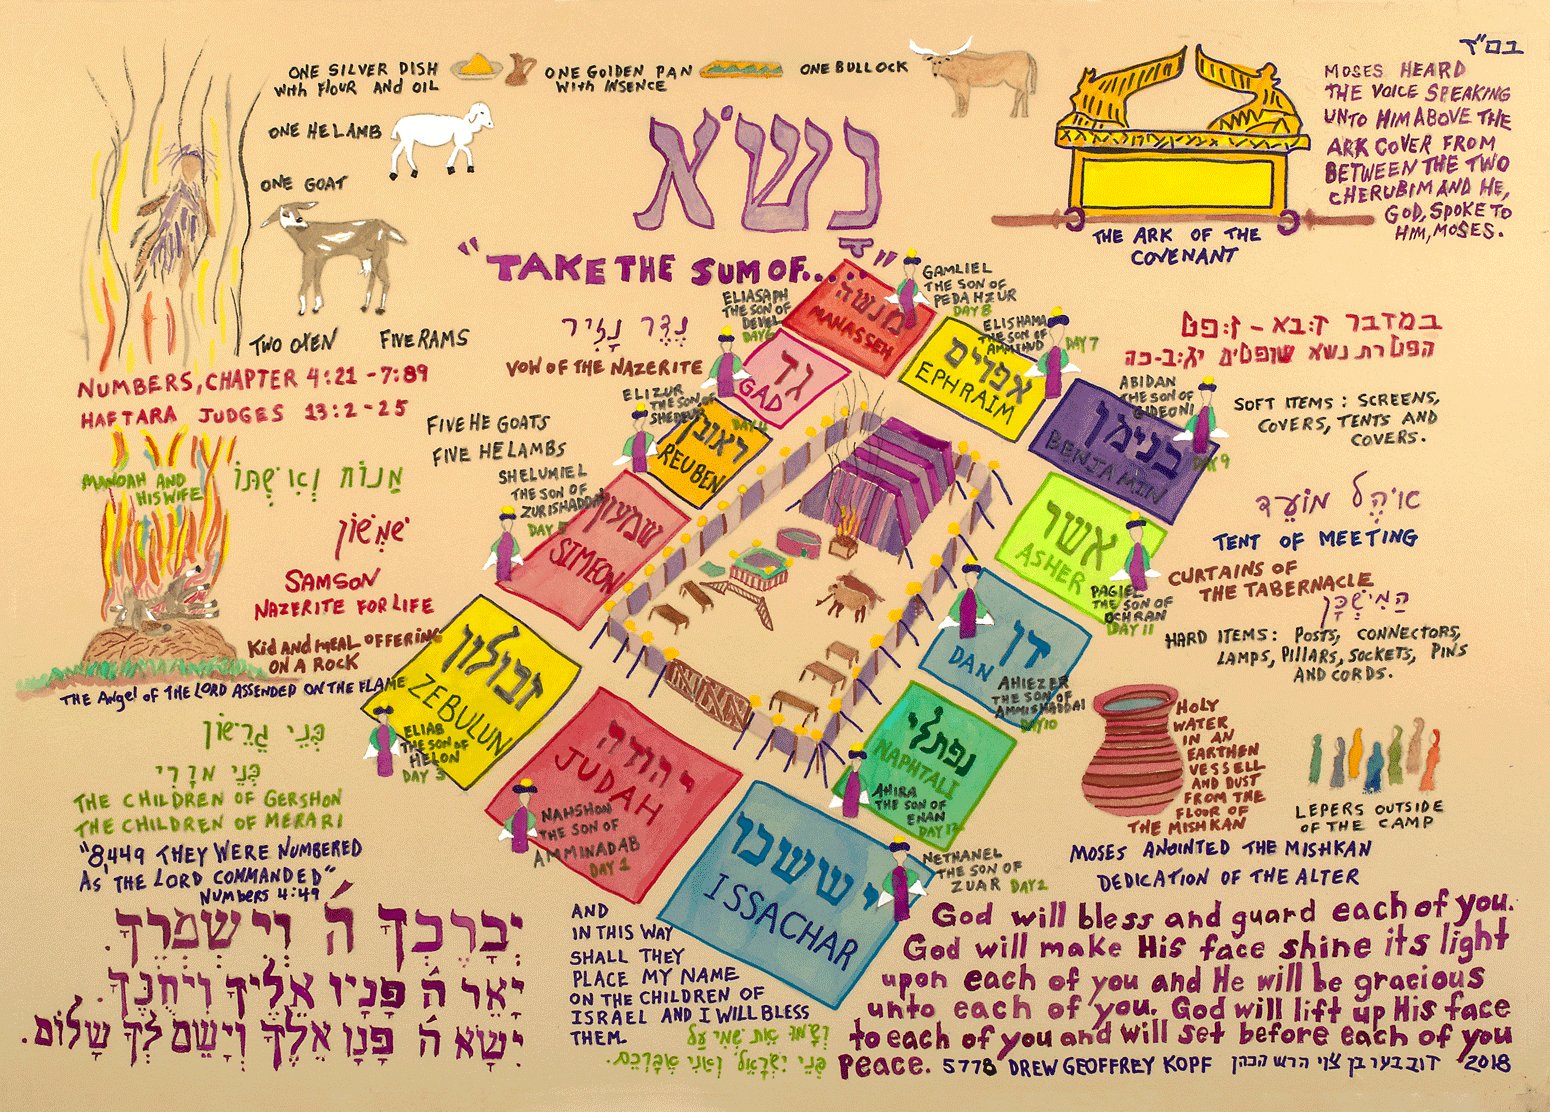 בס"ד
ONE SILVER DISH
with FLOUR AND OIL
ONE GOLDEN PAN
with INSENCE
ONE BULLOCK
ONE HE LAMB
ONE GOAT
TWO OXEN
FIVE RAMS
נָשֹׂא
"TAKE THE SUM OF..."
MOSES HEARD
THE VOICE SPEAKING
UNTO HIM ABOVE THE
ARK COVER FROM
BETWEEN THE TWO
CHERUBIM AND HE,
GOD, SPOKE TO
HIM, MOSES.
THE ARK OF THE
COVENANT
NUMBERS, CHAPTER 4:21 - 7:89
HAFTARA JUDGES 13:2-25
נֶדֶר נָזִיר
VOW OF THE NAZERITE
במדבר
הפטרת נשא שופטים
FIVE HE GOATS
FIVE HE LAMBS
SOFT ITEMS: SCREENS,
COVERS, TENTS AND
COVERS.
ELIASAPH
THE SON OF
DEVEL
DAY 6
גד
GAD
מנשה
MANASSEH
GAMLIEL
THE SON OF
PEDAHZUR
DAY 8
ELISHAMA
THE SON OF
AMMIHUD
DAY 7
אפרים
EPHRAIM
ABIDAN
THE SON OF
GIDEONI
DAY 9
בנימן
BENJAMIN
ELIZUR
THE SON OF
SHEDEUR
DAY 4
ראובן
REUBEN
SHELUMIEL
THE SON OF
ZURISHADDAI
DAY 5
שמעון
SIMEON
אשר
ASHER
PAGIEL
THE SON OF
OCHRAN
DAY 11
דן
DAN
AHIEZER
THE SON OF
AMMISHADDAI
DAY 10
זבולון
ZEBULUN
ELIAB
THE SON OF
HELON
DAY 3
יהודה
JUDAH
NAHSHON
THE SON OF
AMMINADAB
DAY 1
נפתלי
NAPHTALI
AHIRA
THE SON OF
ENAN
DAY 12
יששכר
ISSACHAR
NETHANEL
THE SON OF
ZUAR DAY 2
MANOAH AND
HIS WIFE
מָנוֹחַ וְאִשְׁתּוֹ
שִׁמְשׁוֹן
SAMSON
NAZERITE FOR LIFE
Kid AND MEAL OFFERING
ON A ROCK
THE Angel OF THE LORD ASSENDED ON THE FLAME
אֹהֶל מוֹעֵד
TENT OF MEETING
CURTAINS OF
THE TABERNACLE
הַמִּשְׁכָּן
HARD ITEMS: POSTS, CONNECTORS,
LAMPS, PILLARS, SOCKETS, PINS
AND CORDS.
HOLY
WATER
IN AN
EARTHEN
VESSELL
AND DUST
FROM THE
FLOOR OF
THE MISHKAN
LEPERS OUTSIDE
OF THE CAMP
MOSES ANOINTED THE MISHKAN
DEDICATION OF THE ALTER
בְּנֵי גֵרְשׁוֹן
בְּנֵי מְרָרִי
THE CHILDREN OF GERSHON
THE CHILDREN OF MERARI
"8449 THEY WERE NUMBERED
AS THE LORD COMMANDED"
NUMBERS 4:49
יְבָרֶכְךָ ה' וְיִשְׁמְרֶךָ.
יָאֵר ה' פָּנָיו אֵלֶיךָ וִיחֻנֶּךָּ.
יִשָּׂא ה' פָּנָו אֵלֶךָ וְיָשֵׂם לְךָ שָׁלוֹם.
AND
IN THIS WAY
SHALL THEY
PLACE MY NAME
ON THE CHILDREN OF
ISRAEL AND I WILL BLESS
THEM.
God will bless and guard each of you.
God will make His face shine its light
upon each of you and He will be gracious
unto each of you. God will lift up His face
to each of you and will set before each of you
Peace. 5778 DREW GEOFFREY KOPF 2018